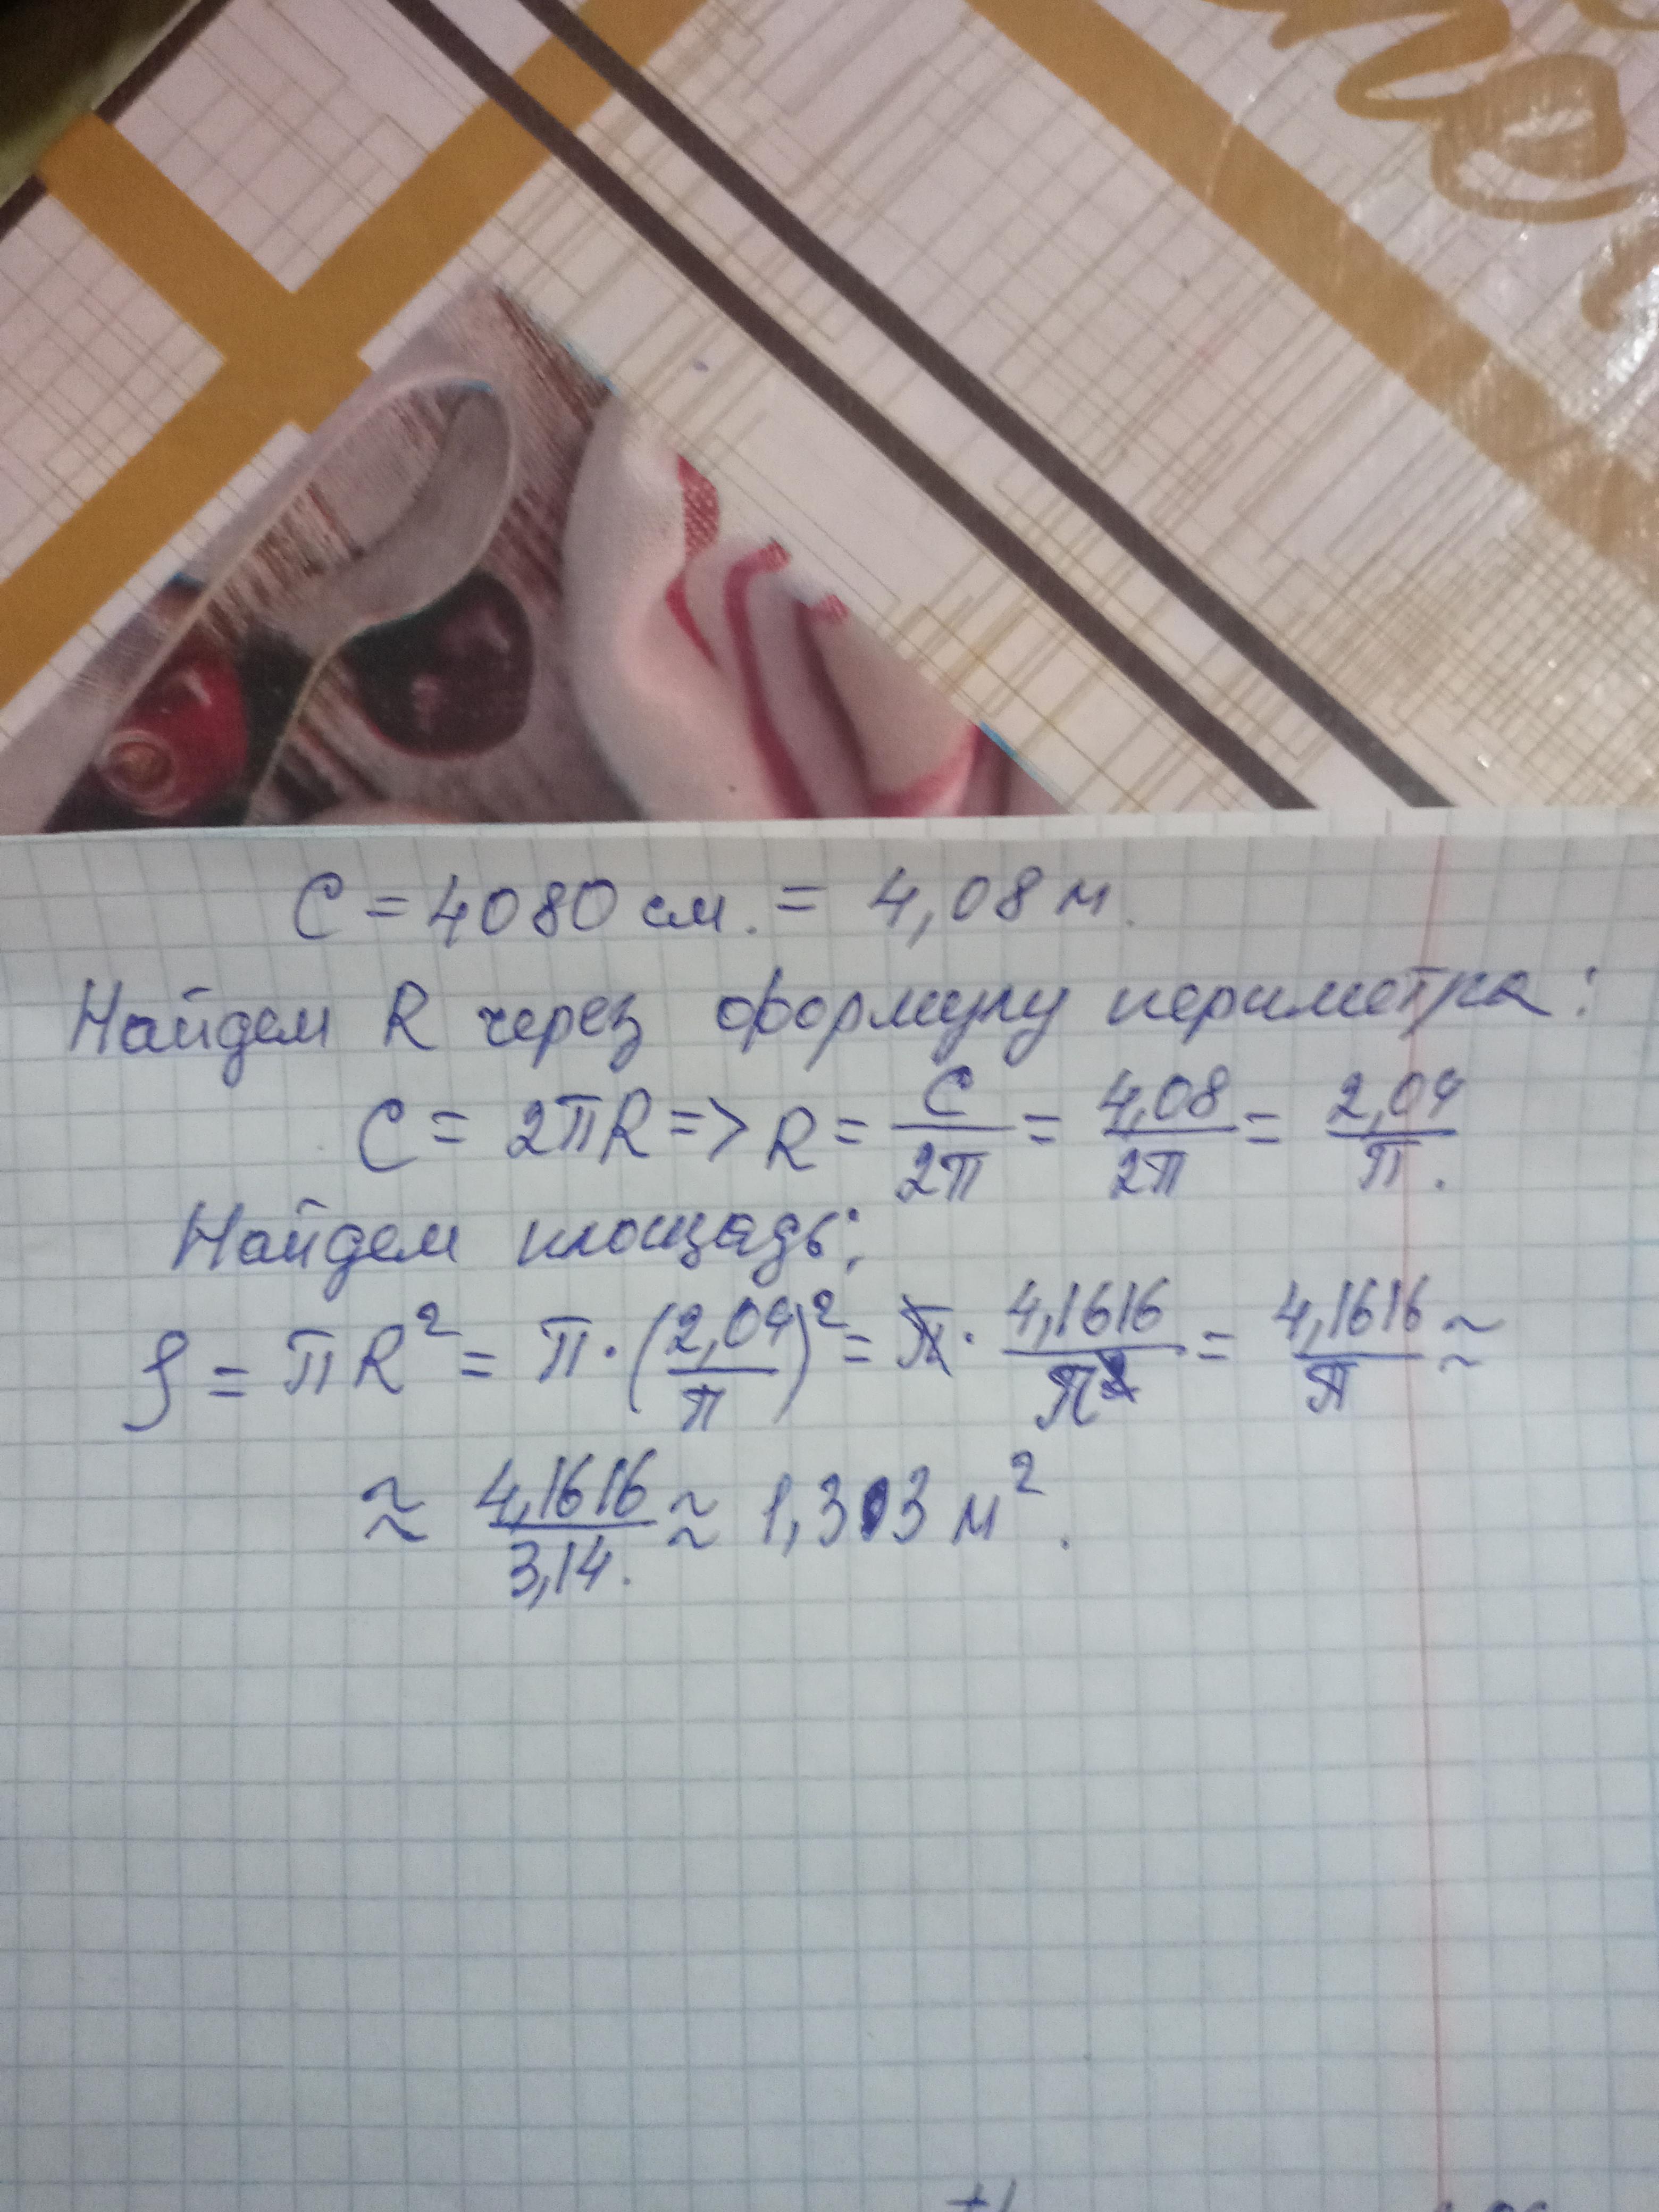 C = 4080 см. = 4,08 м.
Найдем R через формулу периметра:
C = 2πR => R = C/2π = 4,08/2π = 2,04/π.
Найдем площадь:
S = πR² = π · (2,04/π)² = π · 4,1616/π² = 4,1616/π ≈
≈ 4,1616/3,14. ≈ 1,303 м².